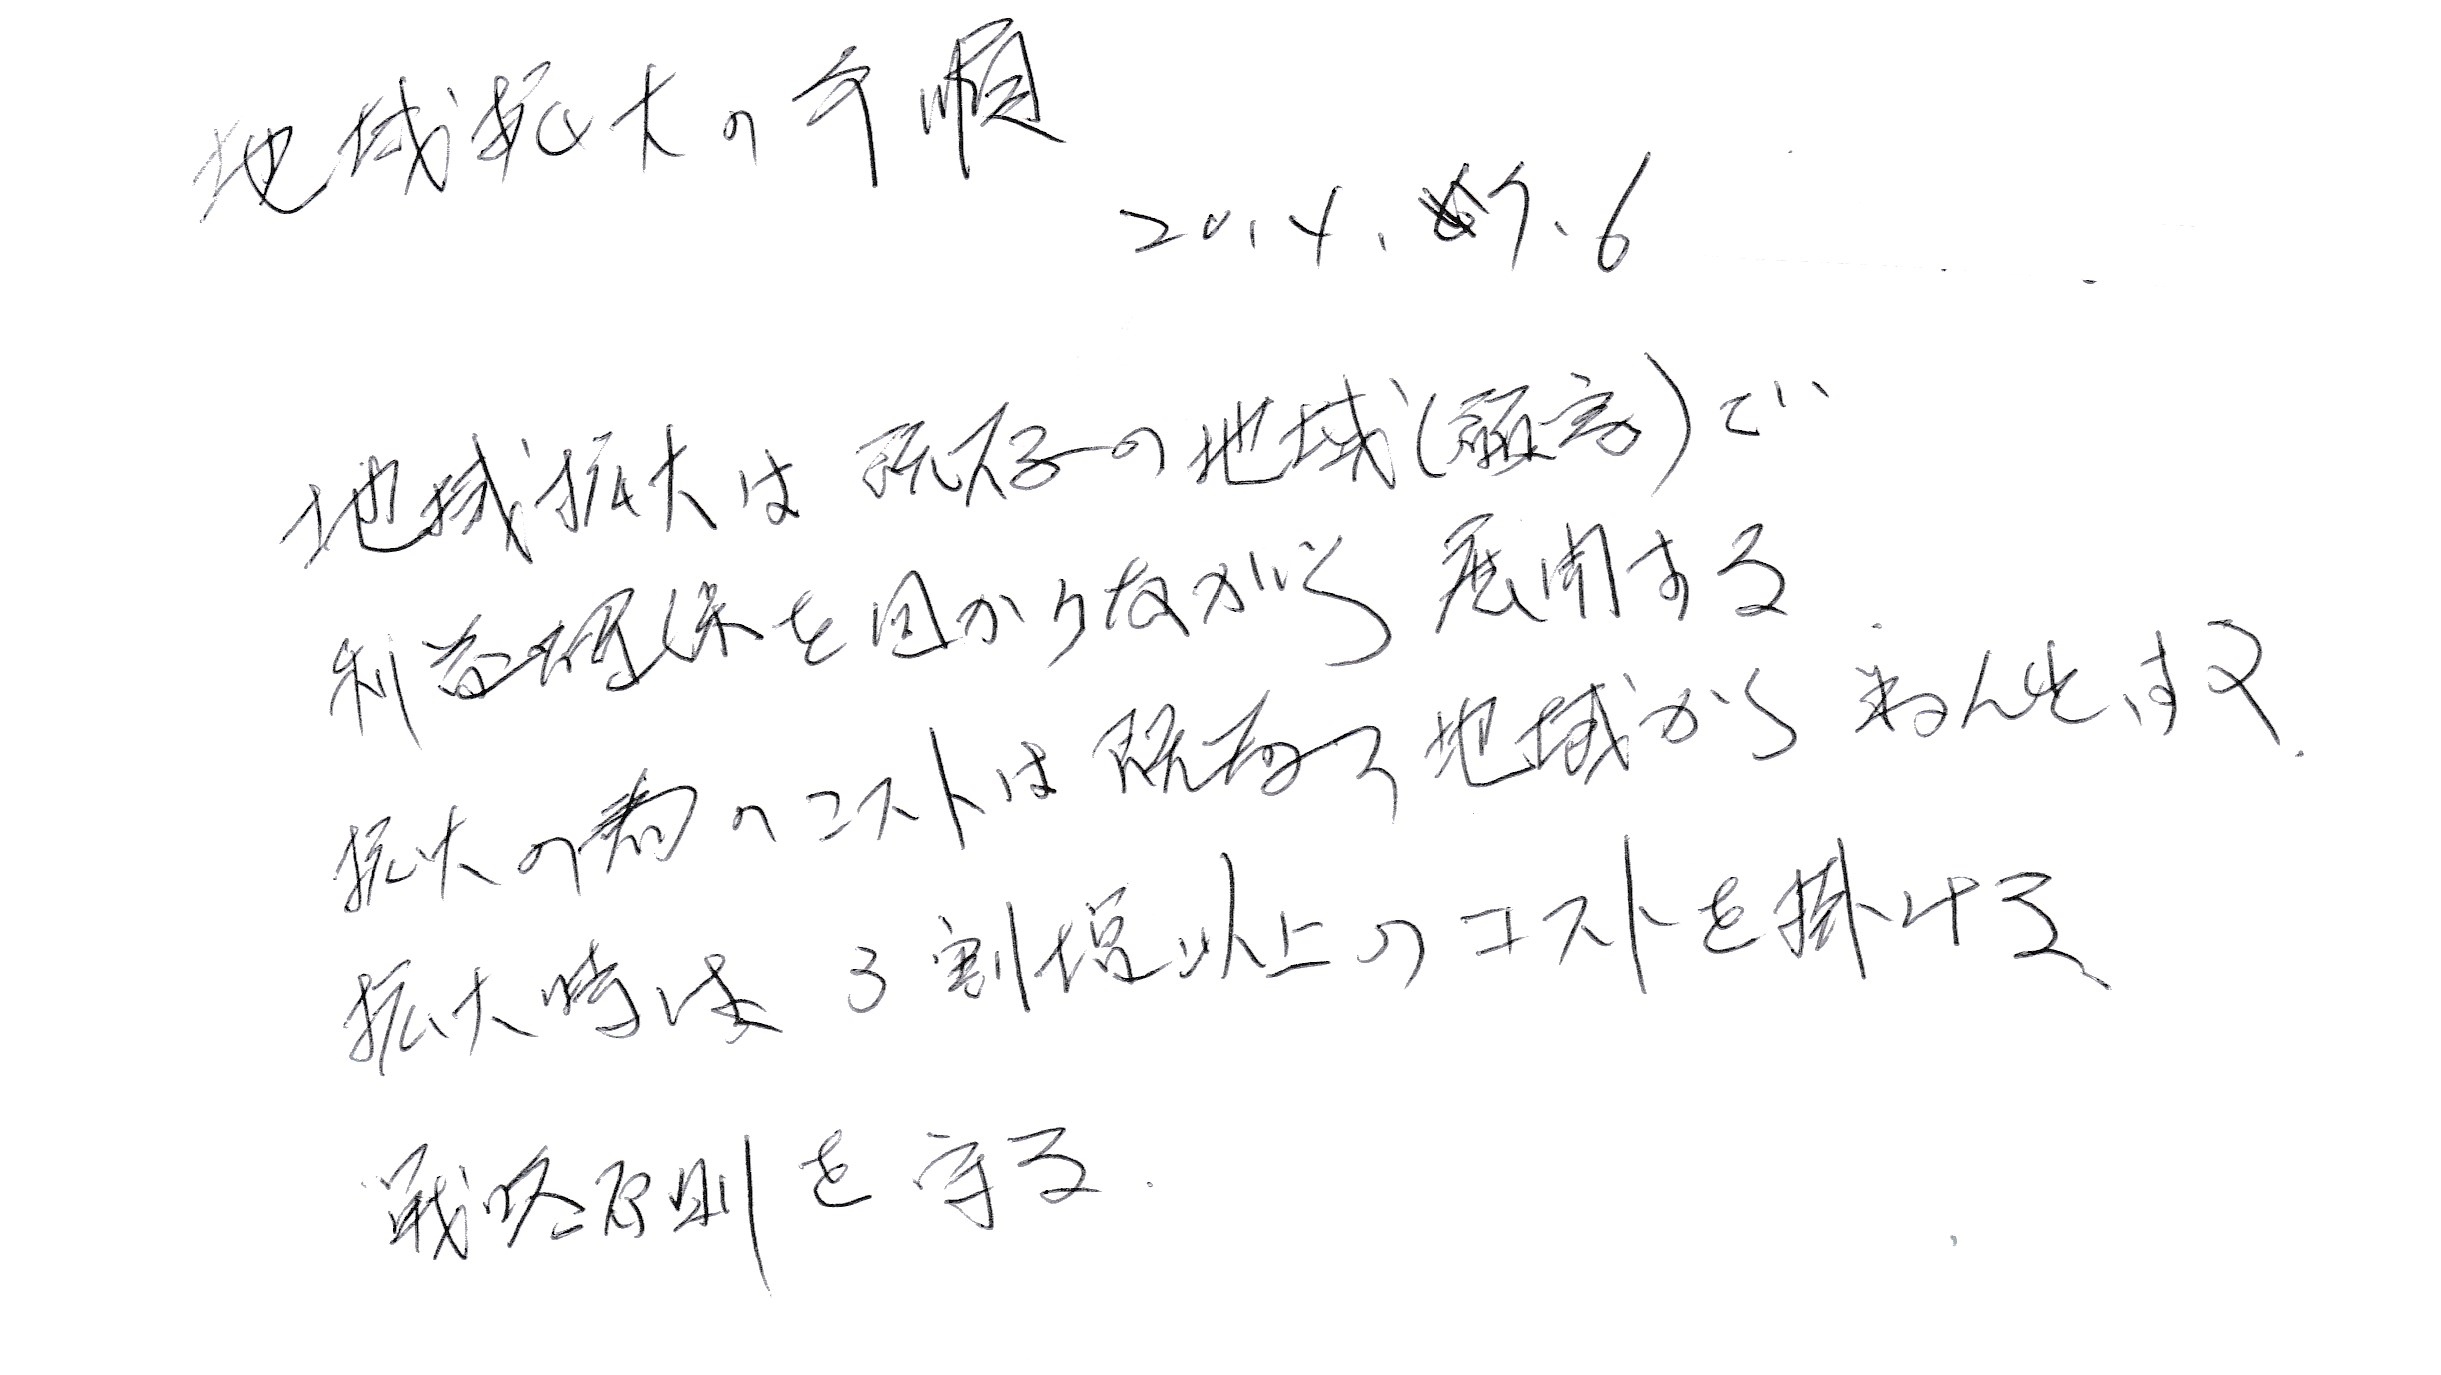 地域拡大の手順
2014.7.6
地域拡大は既存の地域(顧客)で
利益確保を図かりながら展開する
拡大の為のコストは既存の地域からねん出する
拡大時は3割増以上のコストを掛ける
戦略原則を守る.